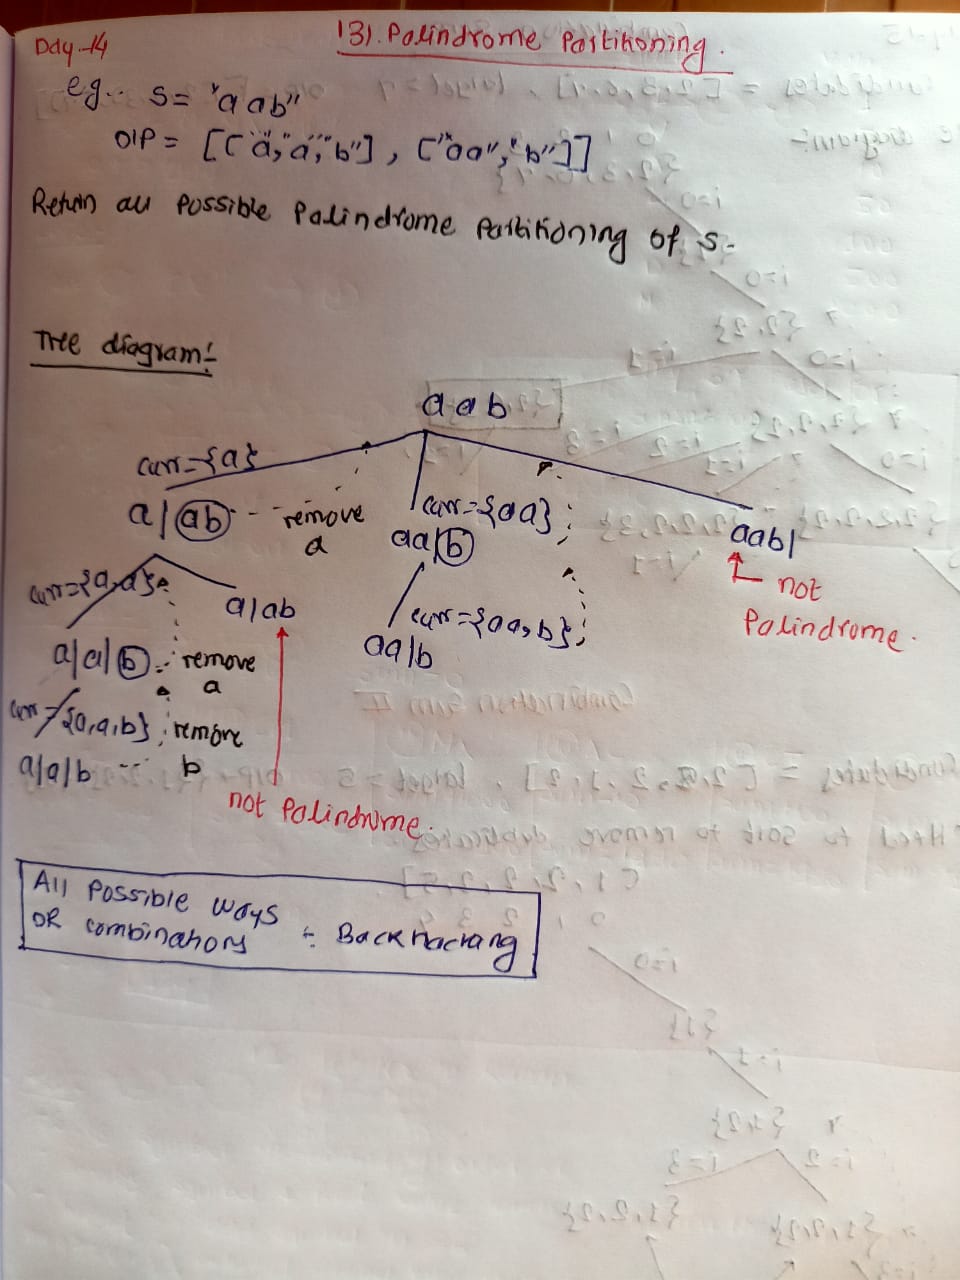 Day-14
131. Palindrome Partitioning.
eg.. S= "aab"
O/P = [["a","a","b"], ["aa","b"]]
Return all possible Palindrome Partitioning of S.
Tree diagram:
aab
curr={a}
a|ab -- remove a
curr={aa}
aa|b
aab|
not Palindrome.
curr={a,a}
a|ab
curr={aa,b}
aa|b
a|a|b remove a
curr={a,a,b} remove
a|a|b -- b
not Palindrome.
All Possible ways
OR combinations : Backtracking